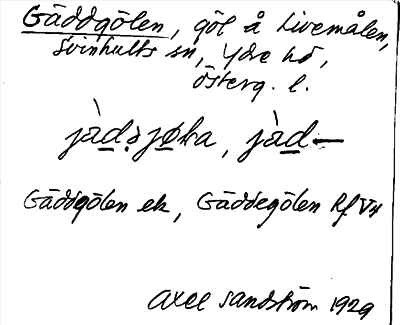 Gäddgölen, göl å Livemålen,
Svinhults sn, Ydre hd,
Österg. l.
jàd.sjøka, jàd—
Gäddgölen ek, Gäddegölen Rf V4
Axel Sandström 1929